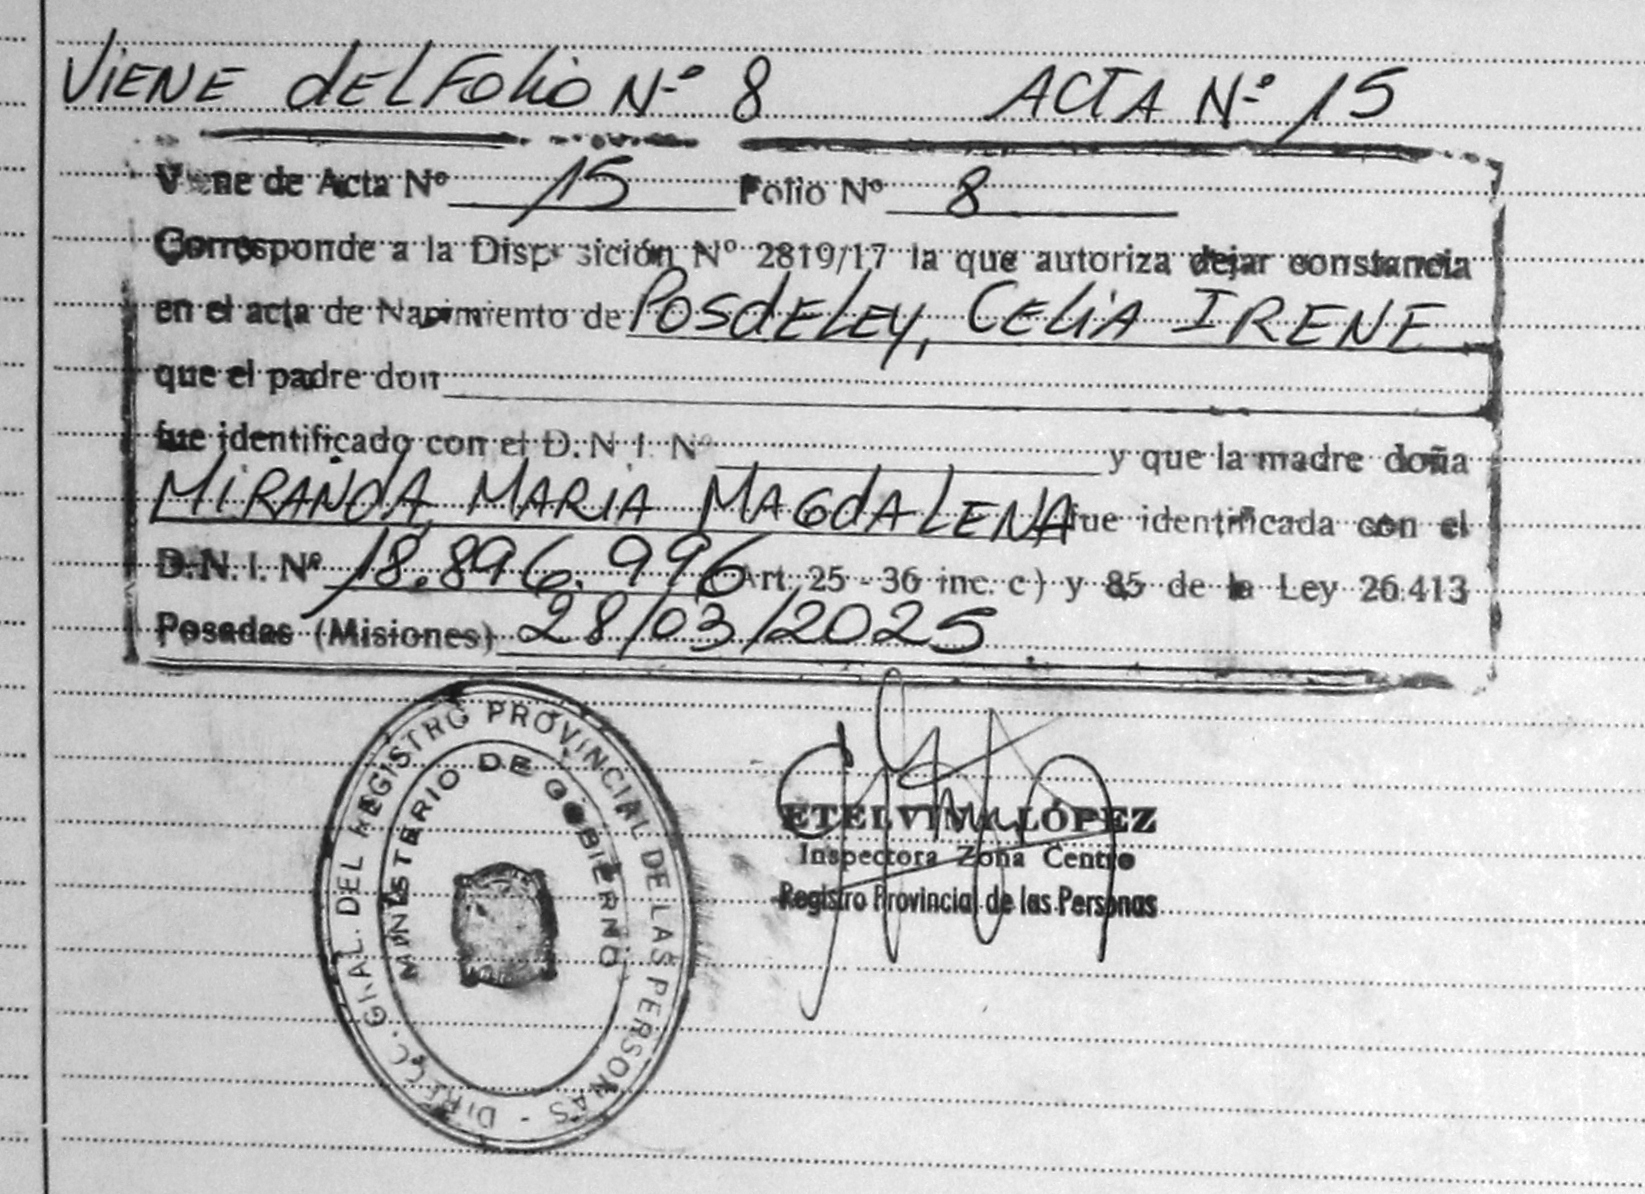 VIENE dEL FOLIO Nº 8 ACTA Nº 15
Viene de Acta Nº 15 Folio Nº 8
Corresponde a la Disposición Nº 2819/17 la que autoriza dejar constancia
en el acta de Nacimiento de POSdELEy, CELIA IRENE
que el padre don
fue identificado con el D.N.I. Nº y que la madre doña
MIRANDA, MARIA MAGdALENA fue identificada con el
D.N.I. Nº 18.896.996 Art. 25 - 36 inc. c) y 85 de la Ley 26.413
Posadas (Misiones) 28/03/2025
DIRECC. GRAL. DEL REGISTRO PROVINCIAL DE LAS PERSONAS -
MINISTERIO DE GOBIERNO
ETELVINA LÓPEZ
Inspectora Zona Centro
Registro Provincial de las Personas